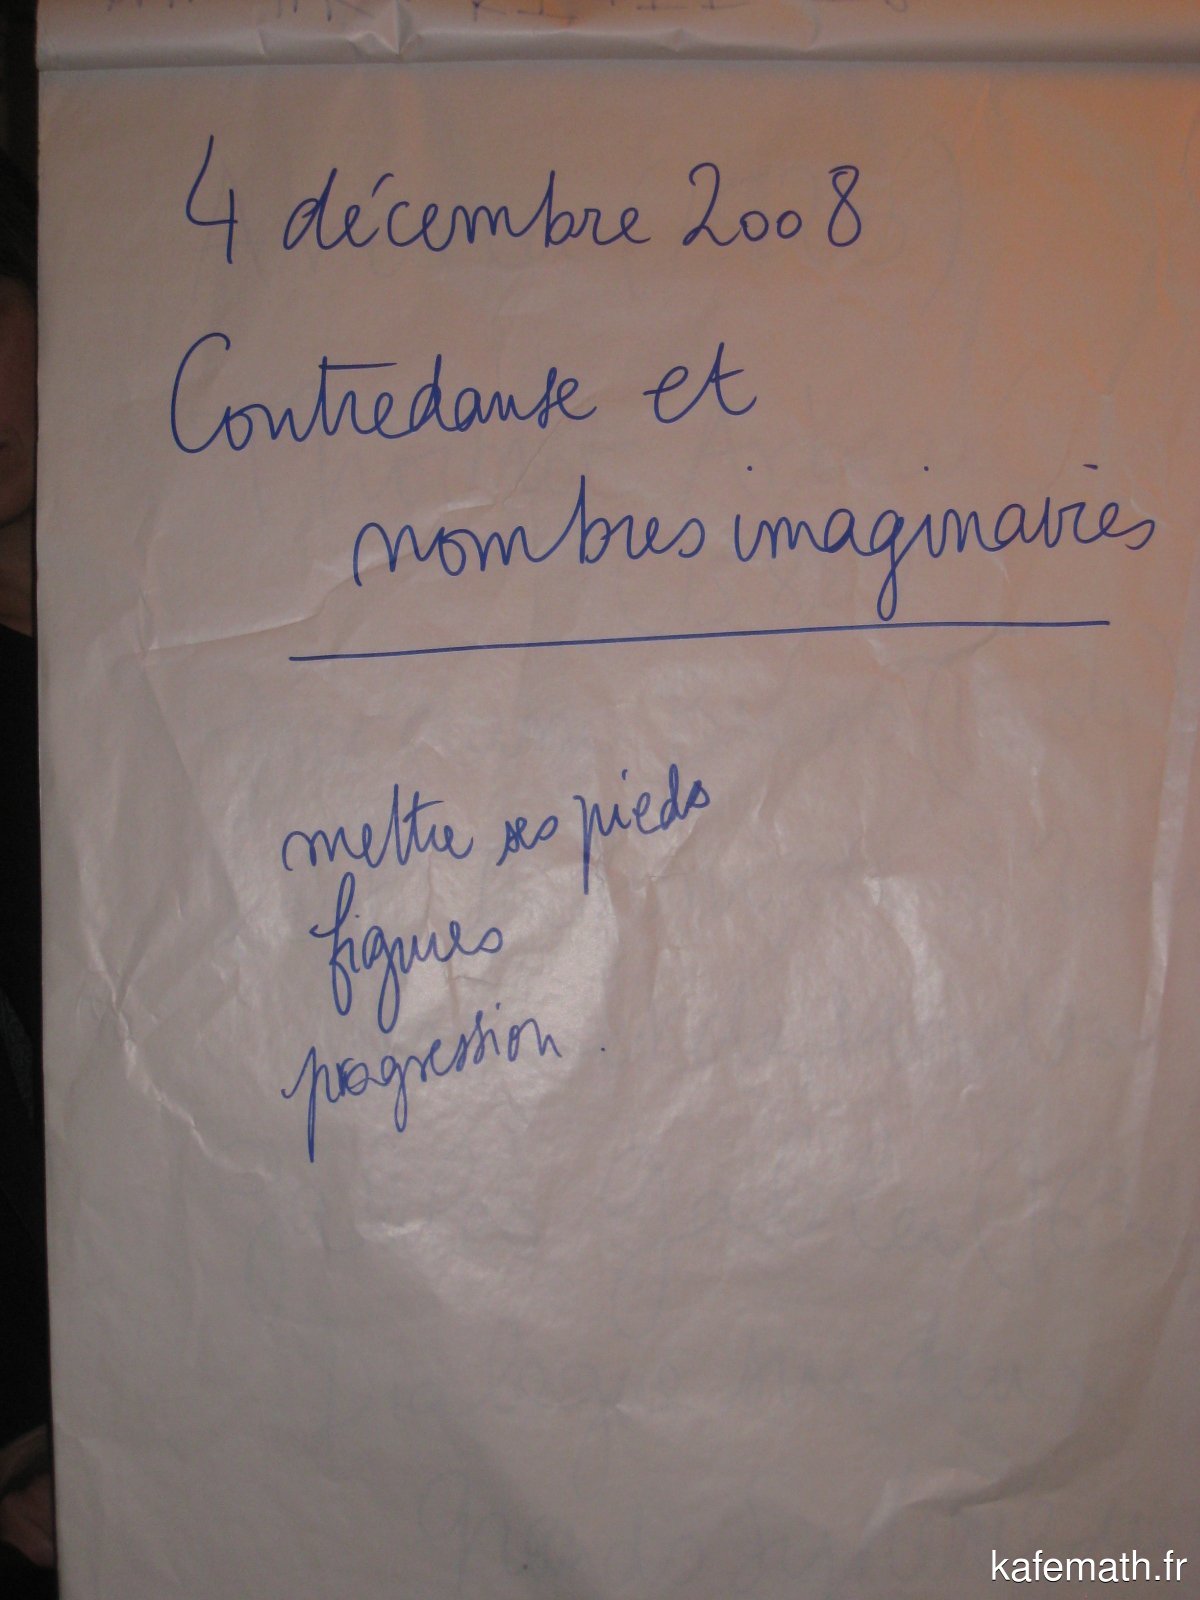 4 décembre 2008
Contredanse et
nombres imaginaires
mettre ses pieds
figures
progression.
kafemath.fr